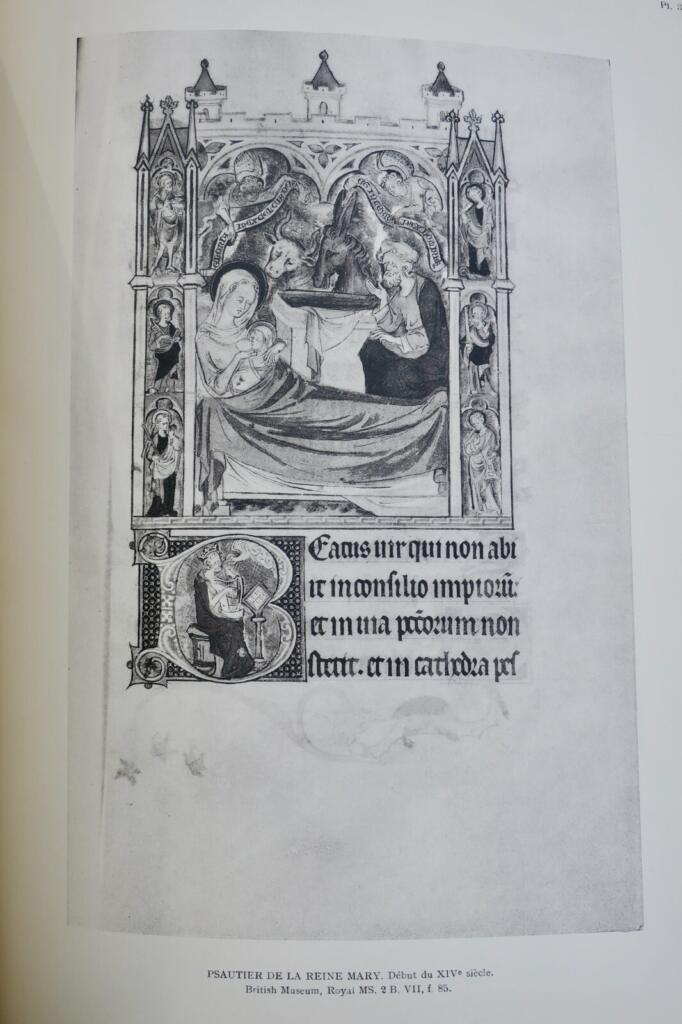 Pl. 3
Beatus uir qui non abi
it in consilio impiorū:
et in uia pctorum non
stetit. et in cathedra pes
PSAUTIER DE LA REINE MARY. Début du XIVe siècle.
British Museum, Royal MS. 2 B. VII, f. 85.